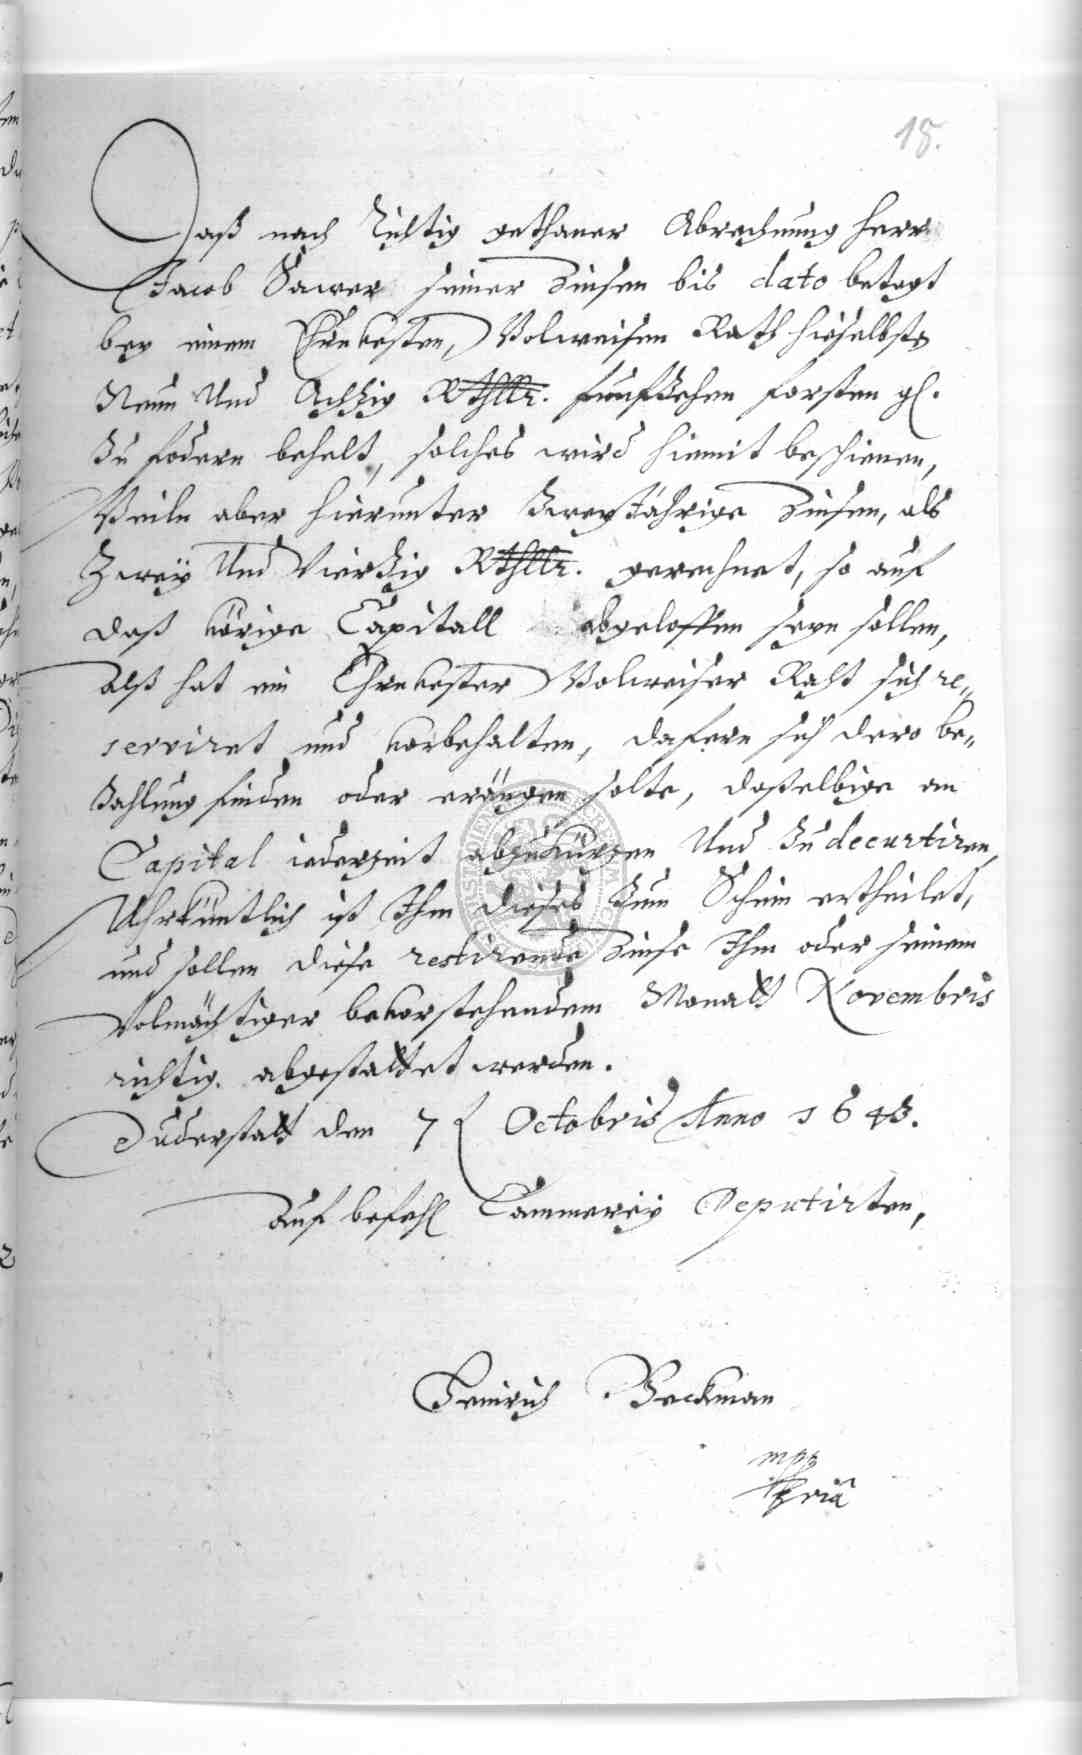 18.
Daß nach Richtig gethaner Abrechnung Herr
Jacob Sawer seiner Zinsen bis dato betagt
bey einem Ehrnvesten, Wolweisen Rath hieselbst
Neun Und Achtzig Rthllr. funfzehen forsten gl.
Zu fodern behelt, solches wird hiemit beschienen,
Weiln aber hierunter Zweyjährige Zinsen, als
Zweÿ Und Viertzig Rthllr. gerechnet, so auf
daß vörige Capitall abgeloffen seyn sollen,
alß hat ein Ehrnvester Wolweiser Raht sich re„
serviret und vorbehalten, dafern sich dero be„
zahlung finden oder eräugen solte, daßelbige an
Capital iederzeit abzukürzen Und Zu decurtiren,
Uhrküntlich ist Ihm dieses Zum Schein ertheilet,
und sollen diese restirende Zinse Ihm oder seinem
Volmächtiger bevorstehendem Monatt Novembris
richtig abgestattet werden.
Duderstatt den 7 Octobris Anno 1643.
Auf befehl Cammereÿ Deputirten,
Heinrich Beckman
mpp